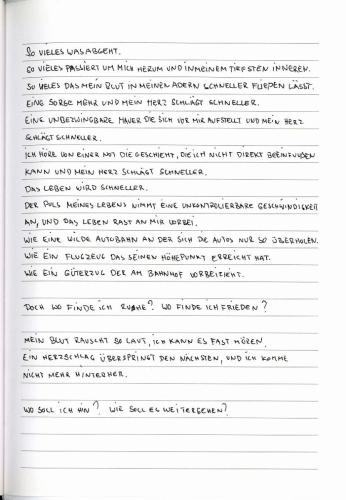 SO VIELES WAS ABGEHT.
SO VIELES PASSIERT UM MICH HERUM UND IN MEINEM TIEFSTEN INNEREN.
SO VIELES DAS MEIN BLUT IN MEINEN ADERN SCHNELLER FLIEßEN LÄSST.
EINE SORGE MEHR UND MEIN HERZ SCHLÄGT SCHNELLER.
EINE UNBEZWINGBARE MAUER DIE SICH VOR MIR AUFSTELLT UND MEIN HERZ
SCHLÄGT SCHNELLER.
ICH HÖRE VON EINER NOT DIE GESCHIEHT, DIE ICH NICHT DIREKT BEEINFLUßEN
KANN UND MEIN HERZ SCHLÄGT SCHNELLER.
DAS LEBEN WIRD SCHNELLER.
DER PULS MEINES LEBENS NIMMT EINE UNKONTROLIERBARE GESCHWINDIGKEIT
AN, UND DAS LEBEN RAST AN MIR VORBEI.
WIE EINE WILDE AUTOBAHN AN DER SICH DIE AUTOS NUR SO ÜBERHOLEN.
WIE EIN FLUGZEUG DAS SEINEN HÖHEPUNKT ERREICHT HAT.
WIE EIN GÜTERZUG DER AM BAHNHOF VORBEIZIEHT.
DOCH WO FINDE ICH RUHE? WO FINDE ICH FRIEDEN?
MEIN BLUT RAUSCHT SO LAUT, ICH KANN ES FAST HÖREN.
EIN HERZSCHLAG ÜBERSPRINGT DEN NÄCHSTEN, UND ICH KOMME
NICHT MEHR HINTERHER.
WO SOLL ICH HIN? WIE SOLL ES WEITERGEHEN?